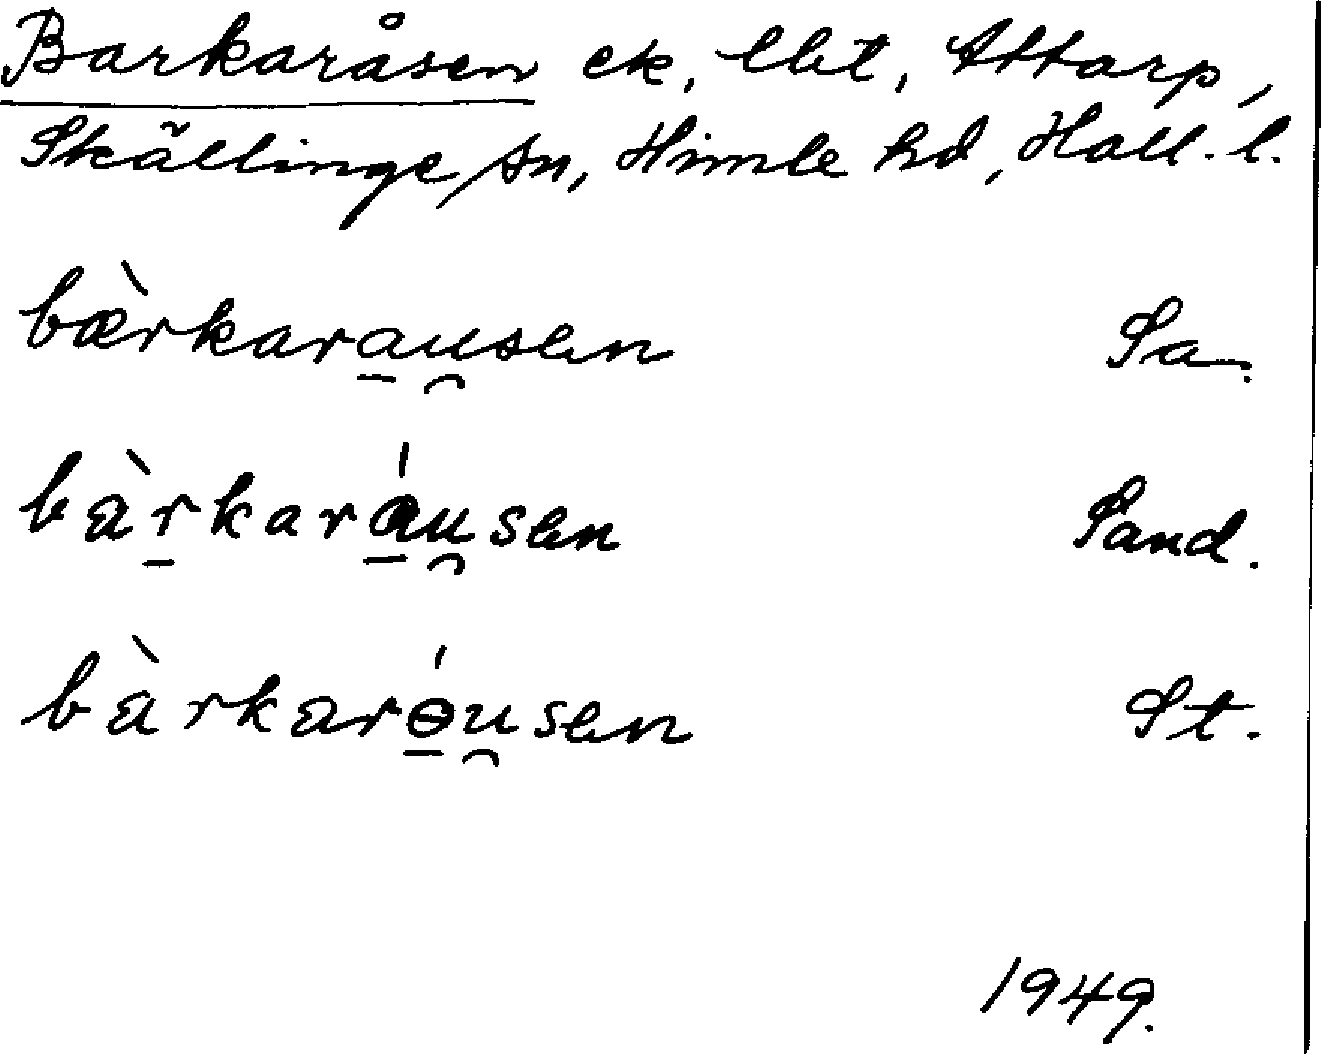 Barkaråsen ek, lbt, Attarp,
Skällinge sn, Himle hd, Hall. l.
bæ̀rkara̱u̯sen Sa.
bàr̠kará̱u̯sen Sand.
bàrkarɵ̠́u̯sen St.
1949.